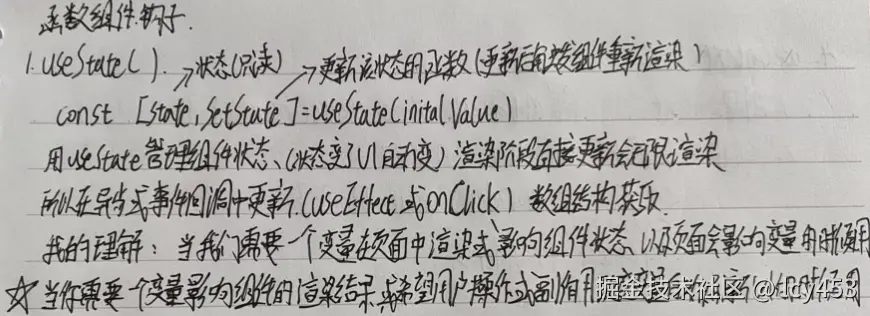 函数组件钩子.
1. useState( ). →状态(只读) →更新该状态的函数(更新后触发组件重新渲染)
const [state, setState]=useState(inital Value)
用useState管理组件状态、(状态变了UI自动变) 渲染阶段直接更新会无限渲染
所以在异步或事件回调中更新.(useEffect或onClick) 数组结构获取.
我的理解: 当我们需要一个变量在页面中渲染或影响组件状态、以及页面会影响变量的时候用
☆当你需要一个变量影响组件的渲染结果、或希望用户操作或副作用
掘金技术社区 @ lcy453